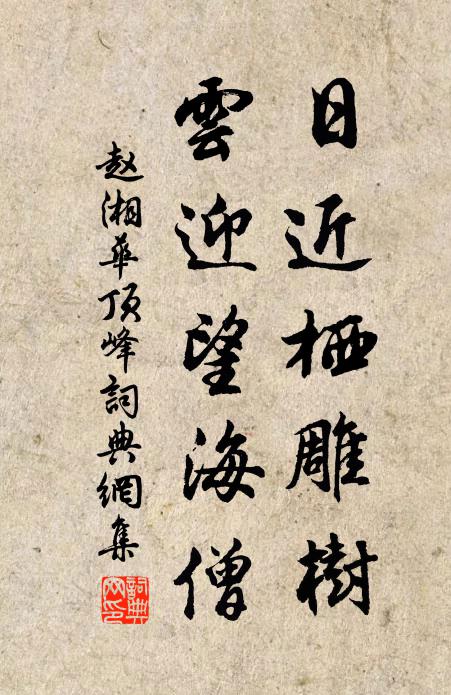 日近栖雕樹
雲迎望海僧
赵湘華顶峰詞典網集
詞典網印